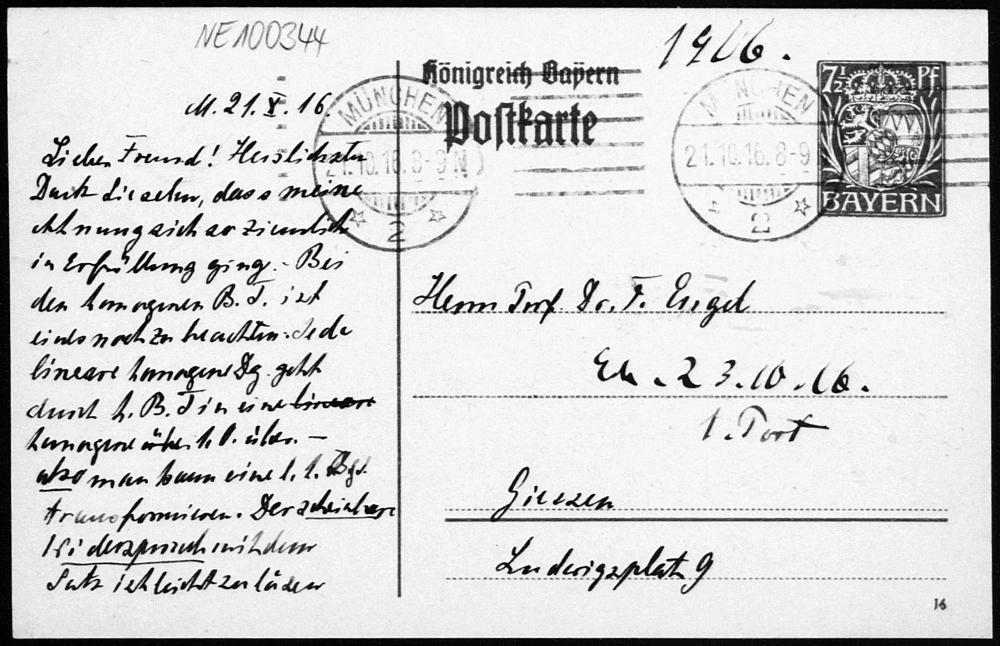 NE100344
1906.
Königreich Bayern
Postkarte
7½ Pf
BAYERN
MÜNCHEN
21.10.16. 8-9 N
2
MÜNCHEN
21.10.16. 8-9
2
M. 21. X. 16.
Lieber Freund! Herzlichsten
Dank Sie sehen, dass meine
Ahnung sich so ziemlich
in Erfüllung ging. - Bei
den homogenen B. T. ist
eines noch zu beachten. Jede
lineare homogene Dg. geht
durch h. B. T in eine lineare
homogene über. -
also man kann eine l. h. Dgl.
transformieren. Der scheinbare
Widerspruch mit dem
Satz ist leicht zu lösen
Herrn Prof. Dr. F. Engel
Eh. 23.10.16.
1. Port
Giessen
Ludwigsplatz 9
16